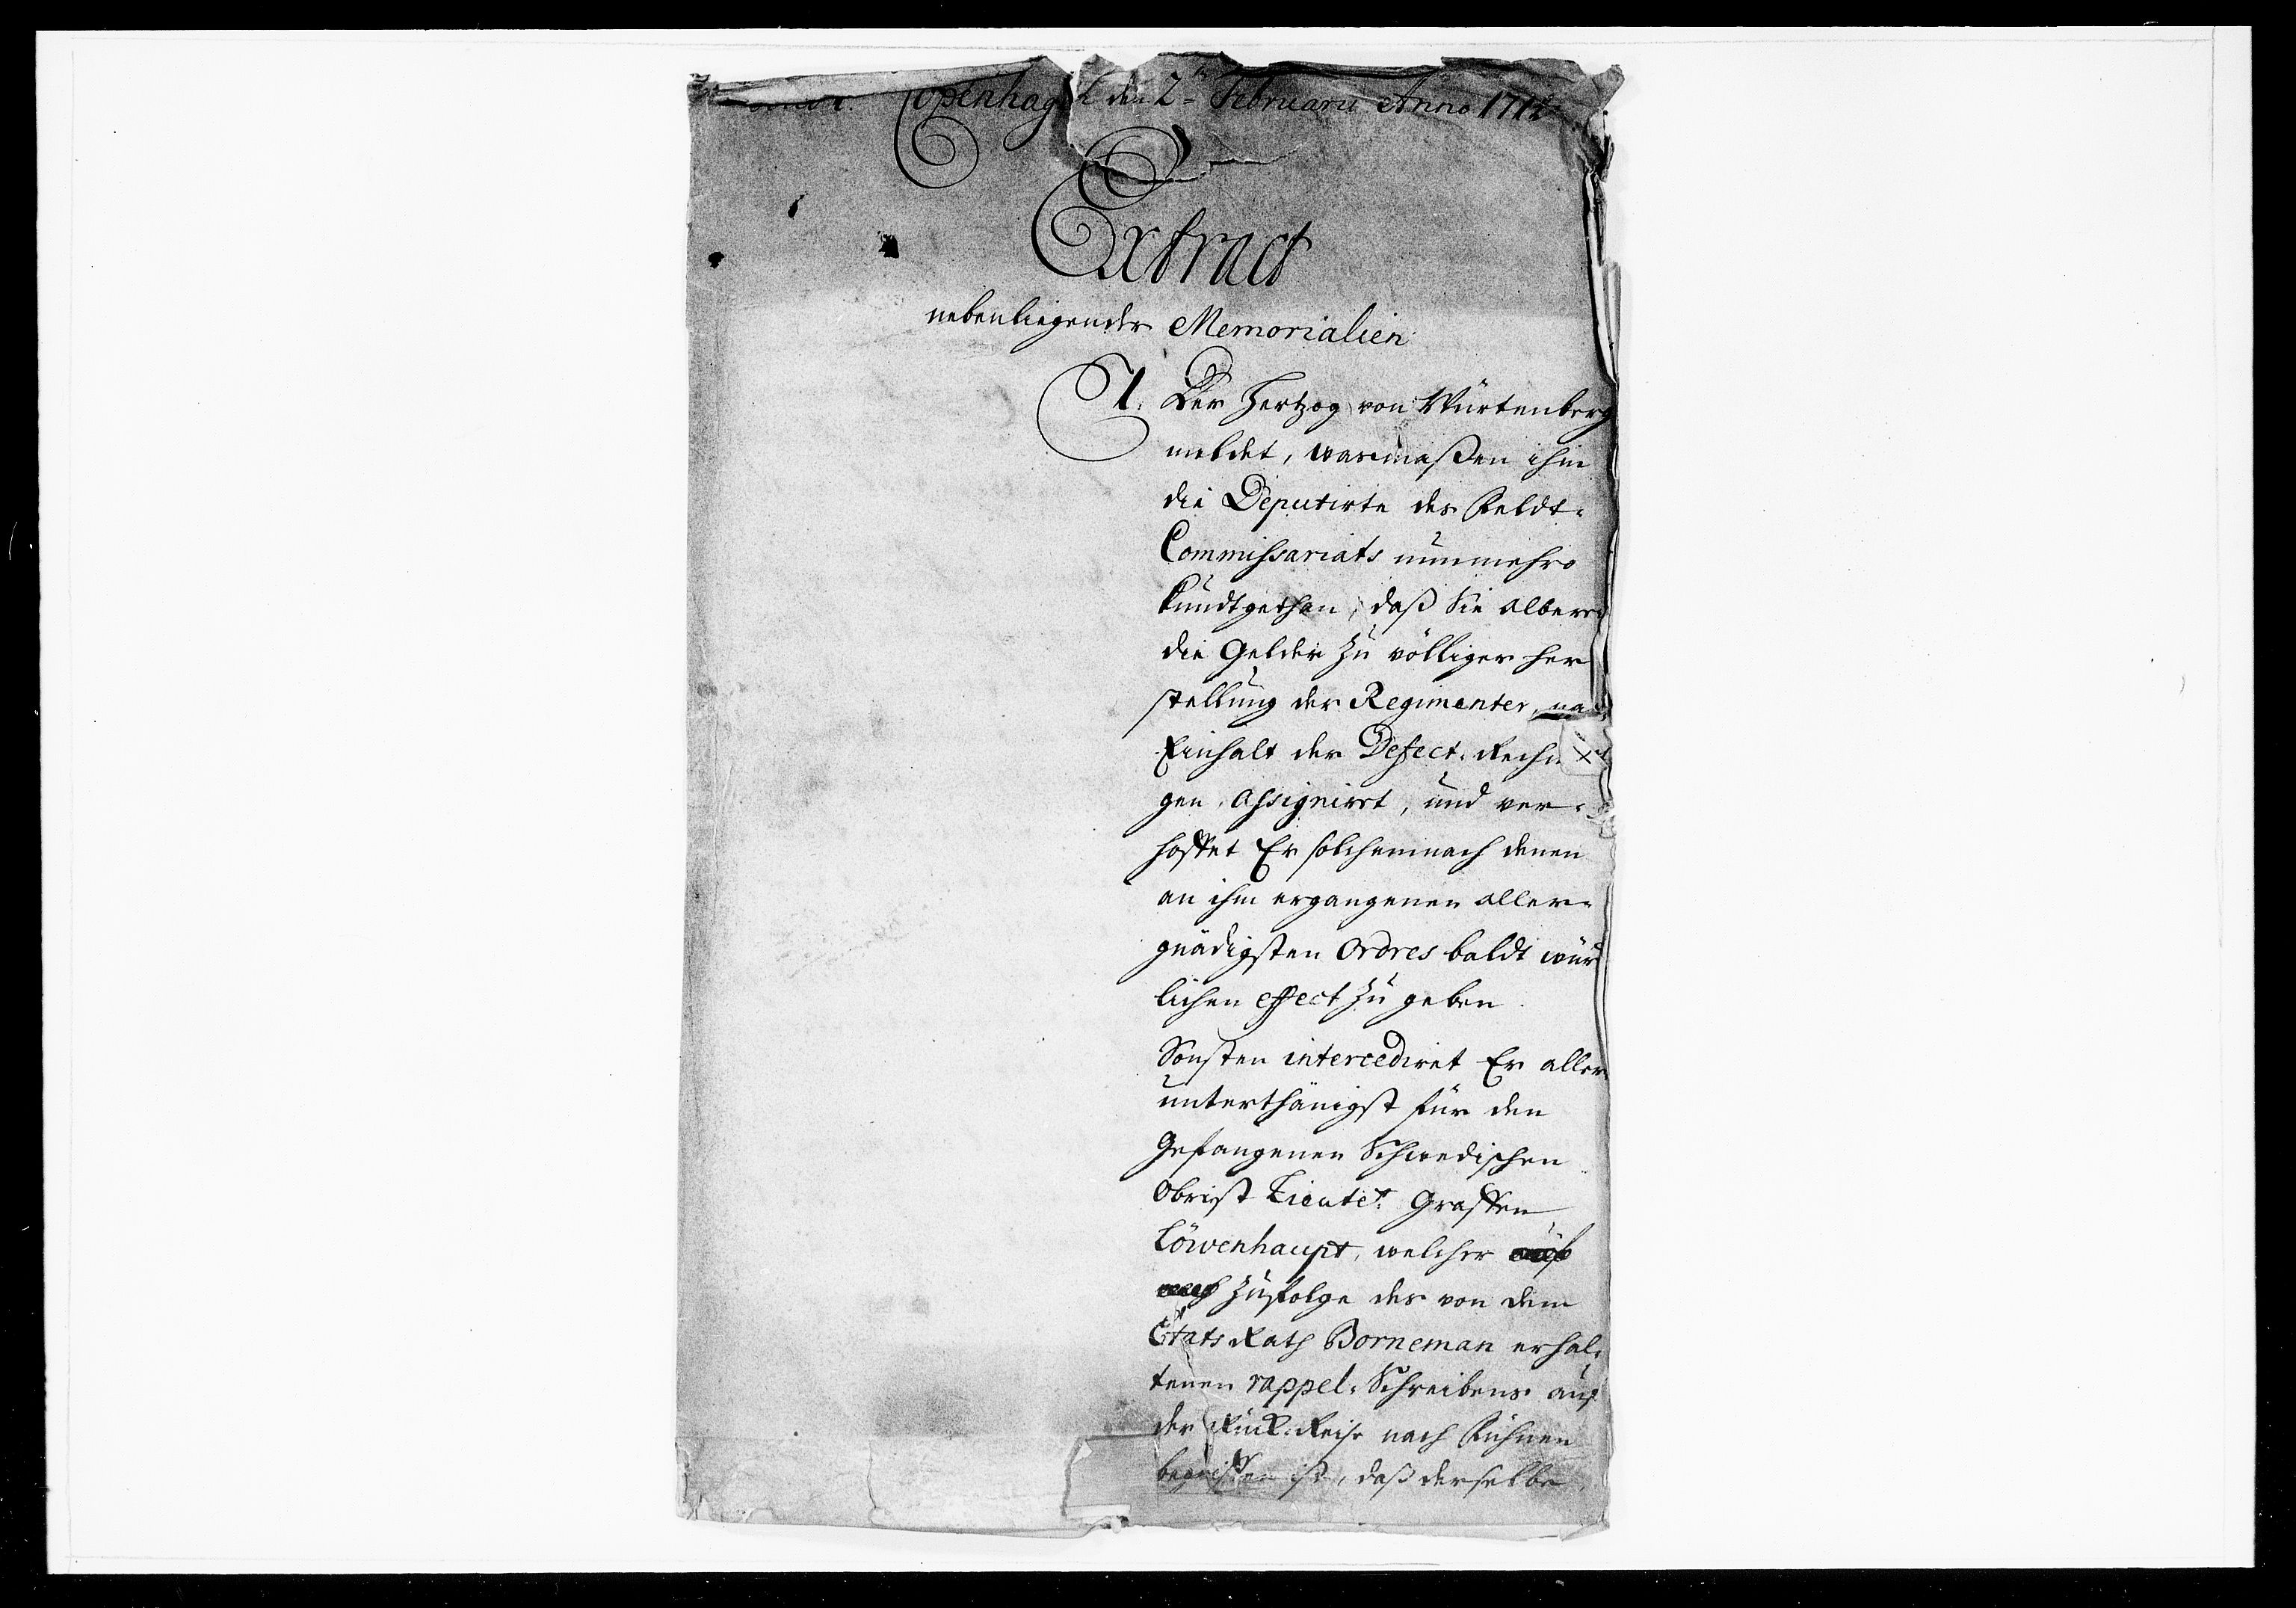 Copenhagen den 2ᵗ Februarii Anno 1712
Extract
nebenliegender Memorialien
1. Der Hertzog von Würtenberg
meldet, wasmaßen ihm
die Deputirte des Feldt-
Commissariats nunmehro
kundtgethan, daß Sie alberei
die Gelder zu völliger her
stellung der Regimenter, na
Einhalt der Defect-Rechn
gen, assigniret, und ver-
hoffet Er solchemnach denen
an ihm ergangenen aller-
gnädigsten Ordres baldt würk
lichen effect zu geben.
Sonsten intercediret Er aller
unterthänigst für den
Gefangenen Schwedischen
Obrist Lieutet: Graffen
Löwenhaupt, welcher
zufolge des von dem
Etats Rath Borneman erhal-
tenen rappel-Schreibens auf
der Rück-Reise nach Fühnen
begriffen ist, daß derselbe